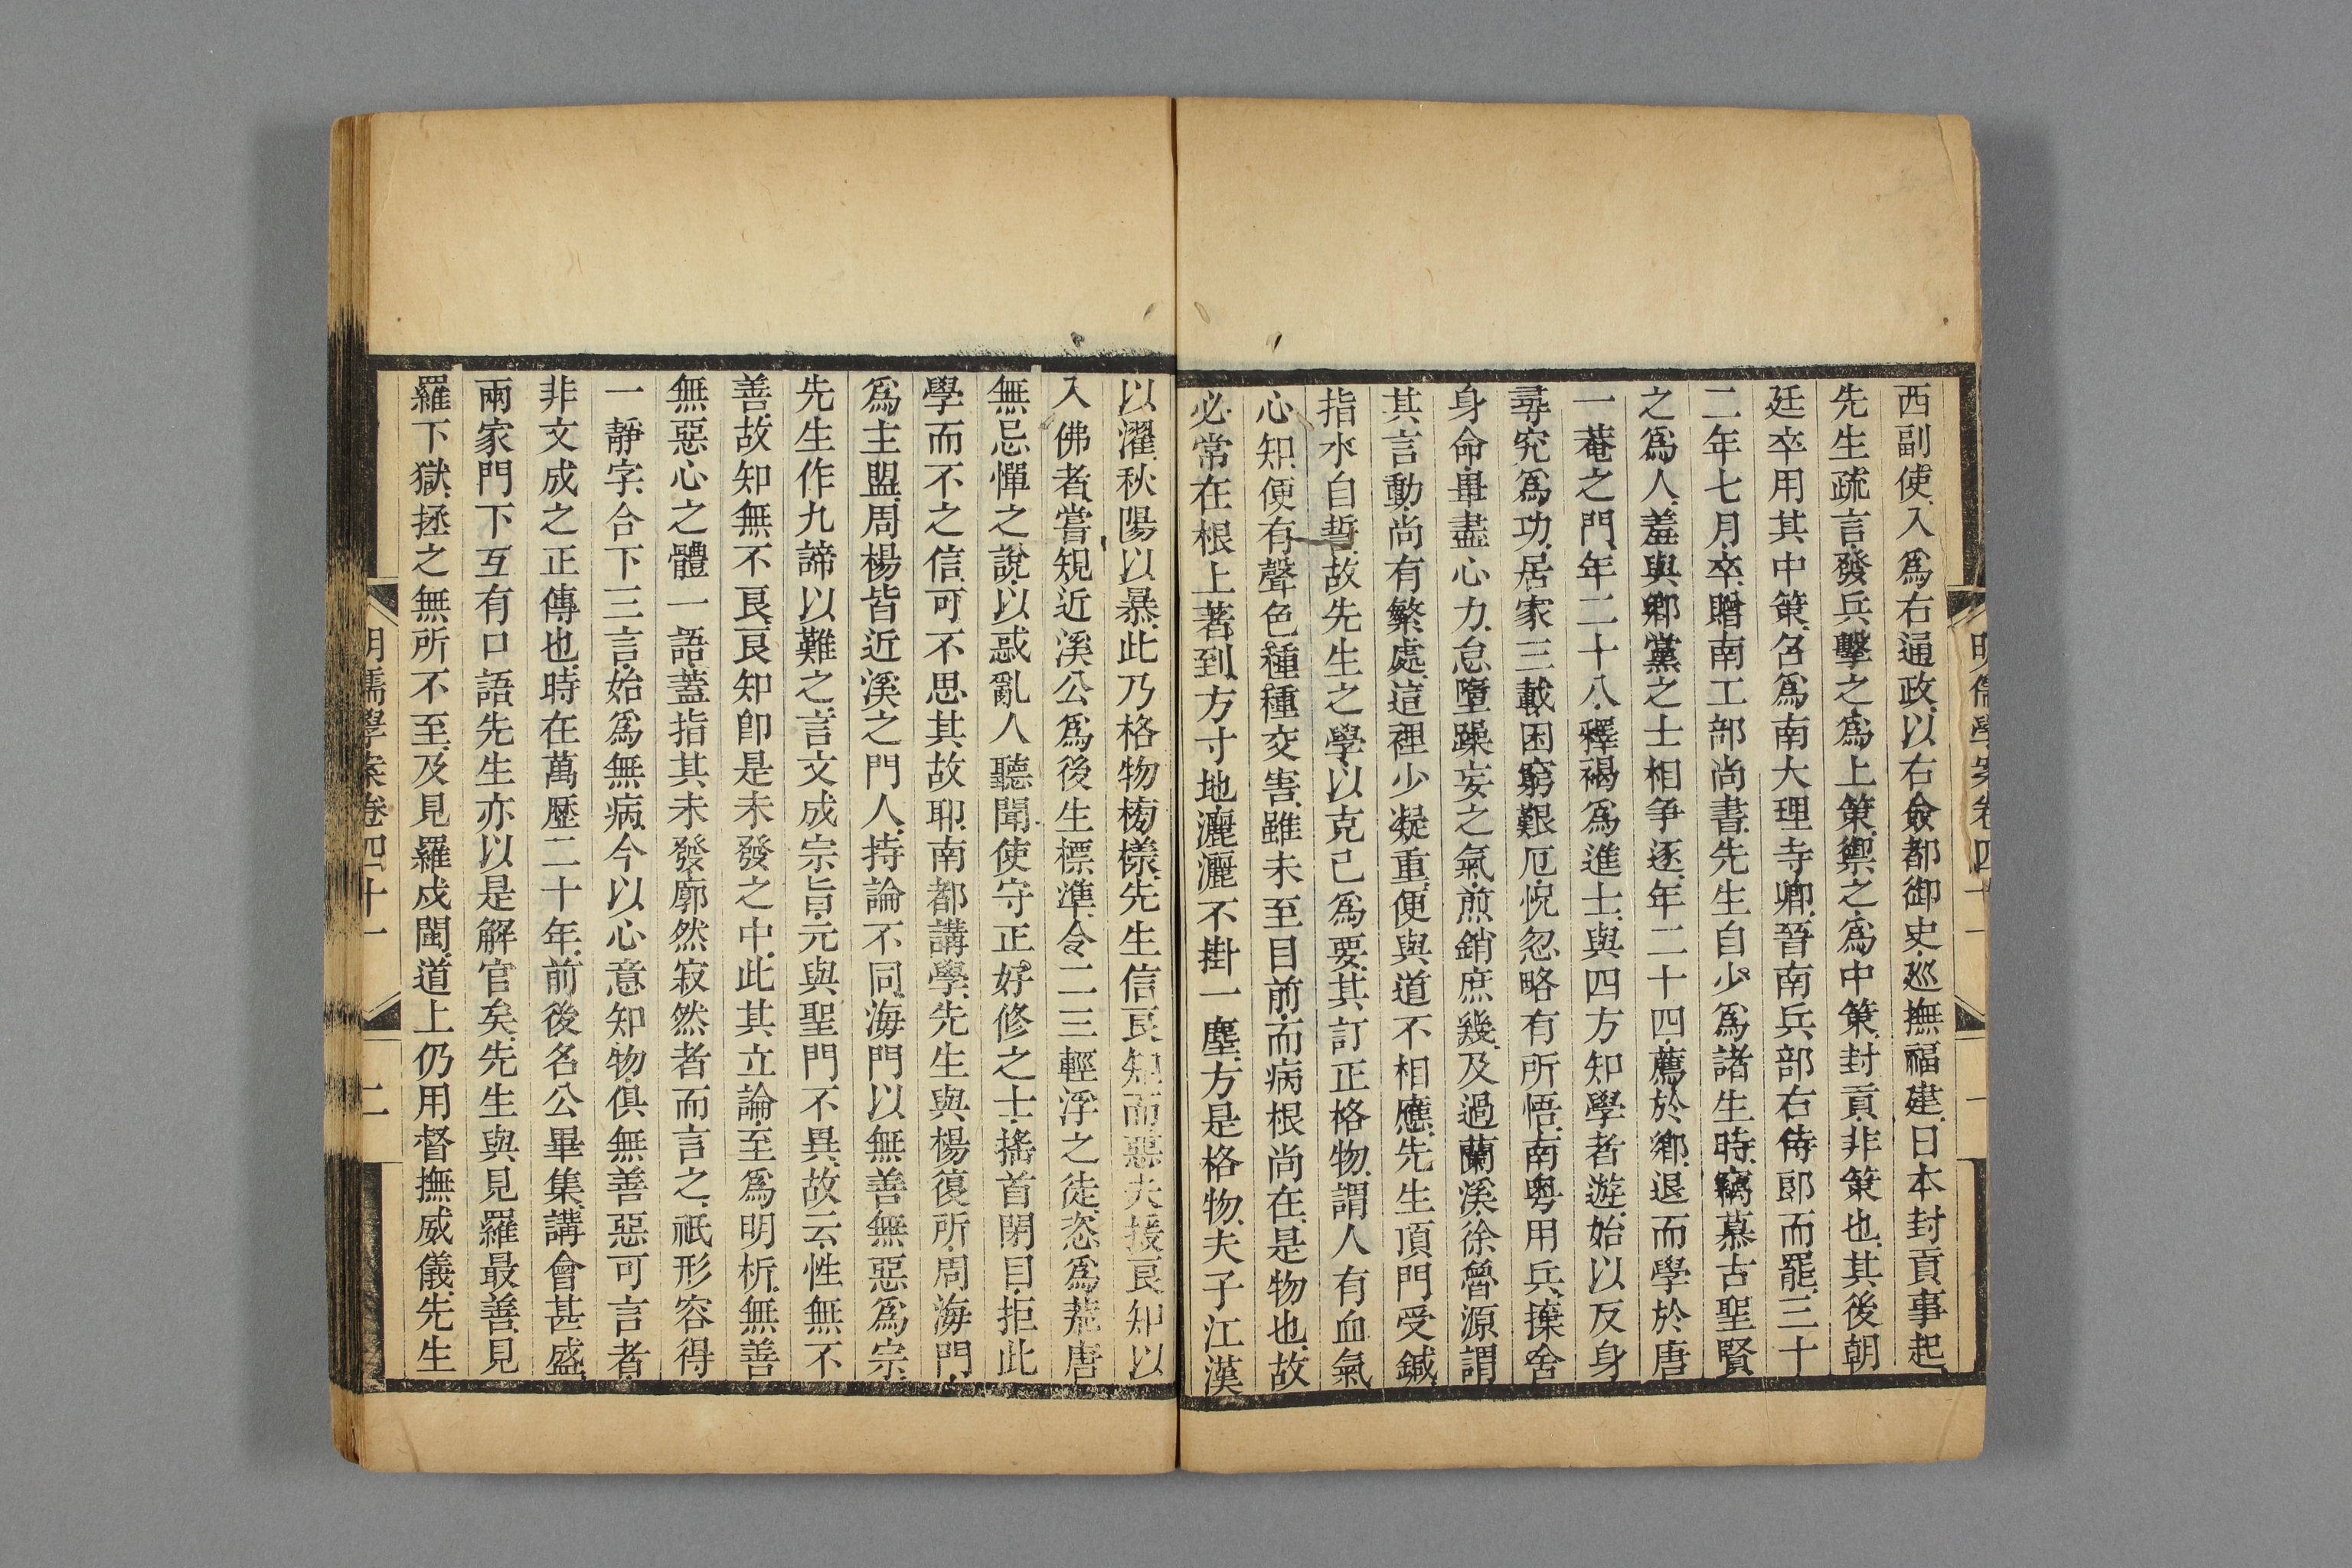 西副使入爲右通政以右僉都御史巡撫福建日本封貢事起
先生疏言發兵擊之爲上策禦之爲中策封貢非策也其後朝
廷卒用其中策召爲南大理寺卿晉南兵部右侍郎而罷三十
二年七月卒贈南工部尚書先生自少爲諸生時竊慕古聖賢
之爲人羞與鄉黨之士相爭逐年二十四薦於鄉退而學於唐
一菴之門年二十八釋褐爲進士與四方知學者遊始以反身
尋究爲功居家三載困窮艱厄怳忽略有所悟南粵用兵擽舍
身命畢盡心力怠墮躁妄之氣煎銷庶幾及過蘭溪徐魯源謂
其言動尚有繁處這裡少凝重便與道不相應先生頂門受鍼
指水自誓故先生之學以克己爲要其訂正格物謂人有血氣
心知便有聲色種種交害雖未至目前而病根尚在是物也故
必常在根上著到方寸地灑灑不掛一塵方是格物夫子江漢
以濯秋陽以暴此乃格物榜樣先生信良知而惡夫援良知以
入佛者嘗規近溪公爲後生標準令二三輕浮之徒恣爲荒唐
無忌憚之說以惑亂人聽聞使守正好修之士搖首閉目拒此
學而不之信可不思其故耶南都講學先生與楊復所周海門
爲主盟周楊皆近溪之門人持論不同海門以無善無惡爲宗
先生作九諦以難之言文成宗旨元與聖門不異故云性無不
善故知無不良良知即是未發之中此其立論至爲明析無善
無惡心之體一語蓋指其未發廓然寂然者而言之祇形容得
一靜字合下三言始爲無病今以心意知物俱無善惡可言者
非文成之正傳也時在萬歷二十年前後名公畢集講會甚盛
兩家門下互有口語先生亦以是解官矣先生與見羅最善見
羅下獄拯之無所不至及見羅戍閩道上仍用督撫威儀先生
明儒學案卷四十一 二